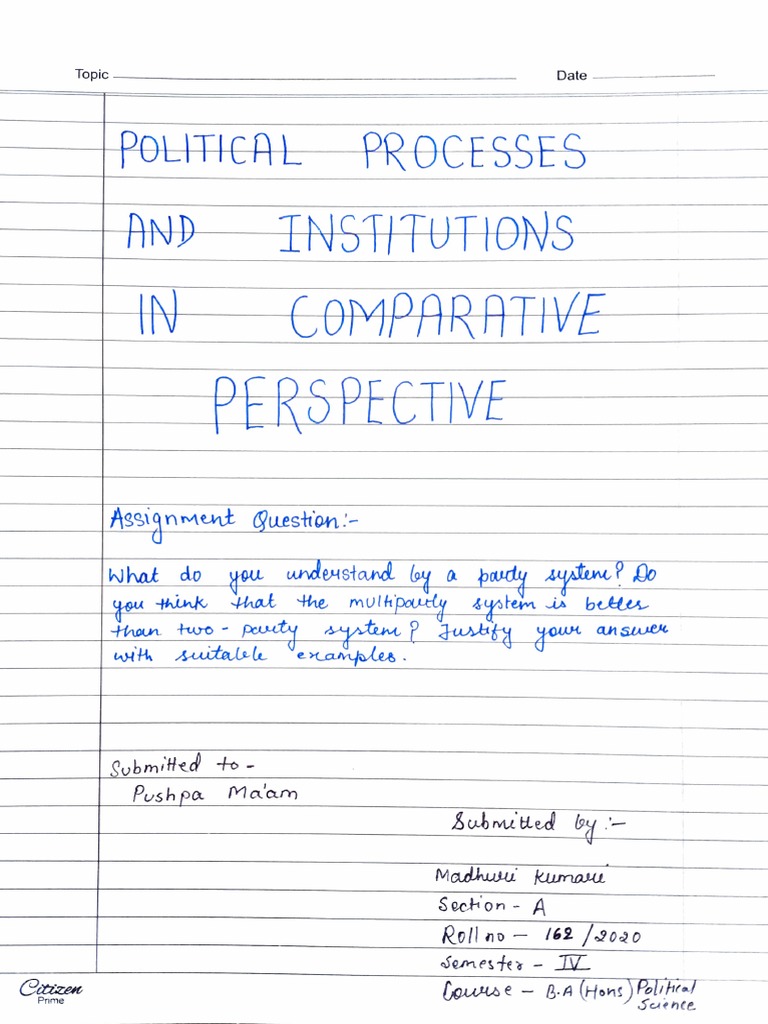 Topic
Date
POLITICAL PROCESSES
AND INSTITUTIONS
IN COMPARATIVE
PERSPECTIVE
Assignment Question:-
What do you understand by a party system? Do
you think that the multiparty system is better
than two-party system? Justify your answer
with suitable examples.
Submitted to -
Pushpa Ma'am
Submitted by :-
Madhuri Kumari
Section - A
Roll no - 162/2020
Semester - IV
Course - B.A (Hons) Political
Science
Citizen
Prime